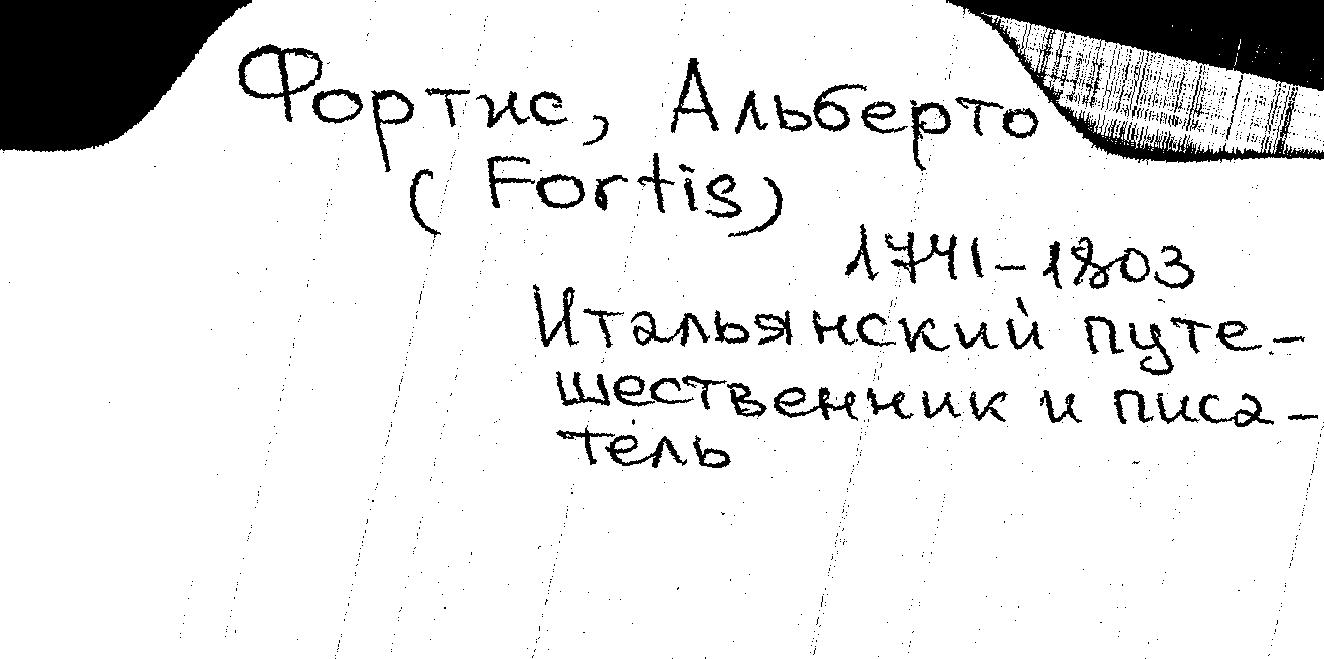 Фортис, Альберто
(Fortis)
1741-1803
Итальянский путе-
шественник и писа-
тель